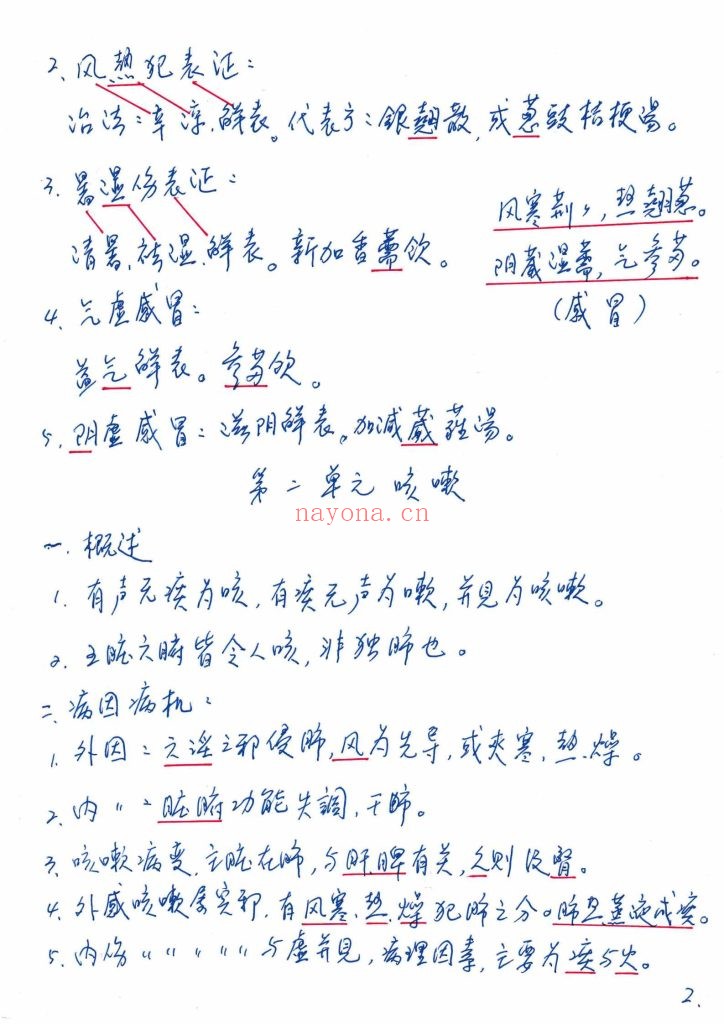 2、风热犯表证：
治法：辛凉、解表。代表方：银翘散，或葱豉桔梗汤。
3、暑湿伤表证：
清暑、祛湿、解表。新加香薷饮。
风寒荆〃，热翘葱。
阴葳湿薷，气参苏。
（感冒）
4、气虚感冒：
益气解表。参苏饮。
5、阴虚感冒：滋阴解表。加减葳蕤汤。
第二单元 咳嗽
nayona.cn
一、概述
1、有声无痰为咳，有痰无声为嗽，并见为咳嗽。
2、五脏六腑皆令人咳，非独肺也。
二、病因病机：
1、外因：六淫之邪侵肺，风为先导，或夹寒、热、燥。
2、内〃：脏腑功能失調，干肺。
3、咳嗽病变，主脏在肺，与肝脾有关，久则及腎。
4、外感咳嗽属实邪，有风寒、热、燥犯肺之分。肺热蒸液成痰。
5、内伤〃〃〃〃〃与虚并見，病理因素，主要为痰与火。
2.